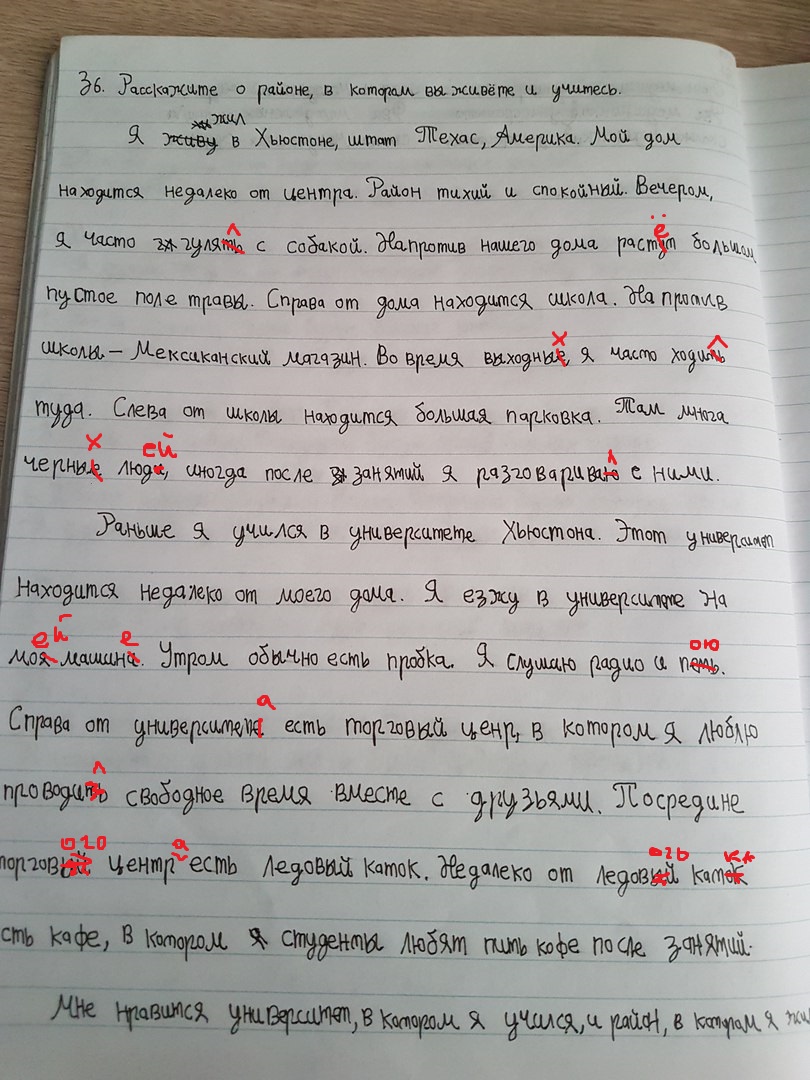 36. Расскажите о районе, в котором вы живёте и учитесь.
жил
Я живу в Хьюстоне, штат Техас, Америка. Мой дом
находится недалеко от центра. Район тихий и спокойный. Вечером,
л ё
я часто гулять с собакой. Напротив нашего дома растут большам
пустое поле травы. Справа от дома находится школа. Напротив
х л
школы – Мексиканский магазин. Во время выходные я часто ходить
туда. Слева от школы находится большая парковка. Там много
х ей л
черные люди, иногда после занятий я разговариваю с ними.
Раньше я учился в университете Хьюстона. Этот университет
Находится недалеко от моего дома. Я езжу в университете на
ей е ою
моя машина. Утром обычно есть пробка. Я слушаю радио и петь.
а
Справа от университете есть торговый ценр, в котором я люблю
л
проводить свободное время вместе с друзьями. Посредине
ого а ого ка
торговый центр есть ледовый каток. Недалеко от ледовый каток
сть кафе, в котором я студенты любят пить кофе после занятий.
Мне нравится университет, в котором я учился, и район, в котором я жи